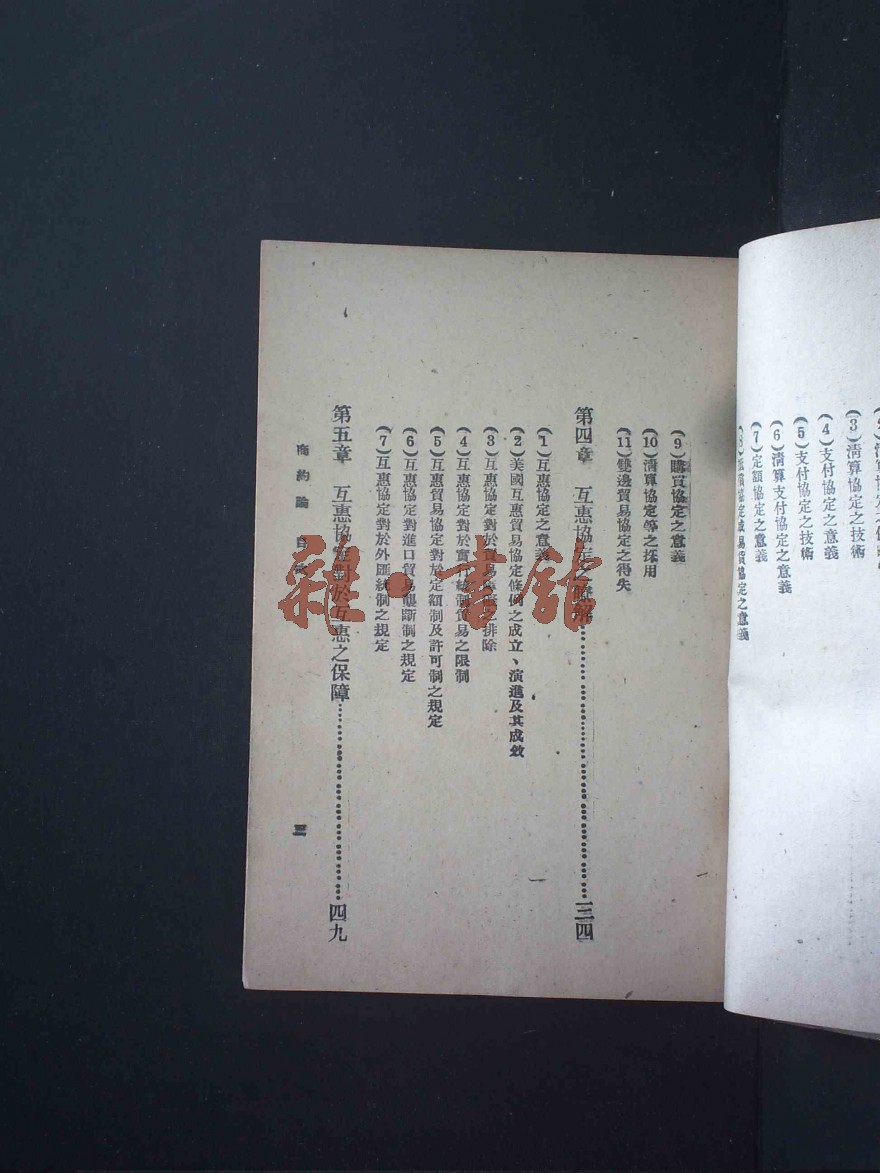 (3)清算協定之技術
(4)支付協定之意義
(5)支付協定之技術
(6)清算支付協定之意義
(7)定額協定之意義
(9)購買協定之意義
(10)清算協定等之採用
(11)雙邊貿易協定之得失
第四章 互惠協定之 解 三四
(1)互惠協定之意義
(2)美國互惠貿易協定條例之成立、演進及其成效
(3)互惠協定對於貿易 之排除
(4)互惠協定對於實行統制貿易之限制
(5)互惠貿易協定對於定額制及許可制之規定
(6)互惠協定對進口貿易壟斷制之規定
(7)互惠協定對於外匯統制之規定
第五章 互惠協定對於互惠之保障 四九
商約論 目
三
雜·書館